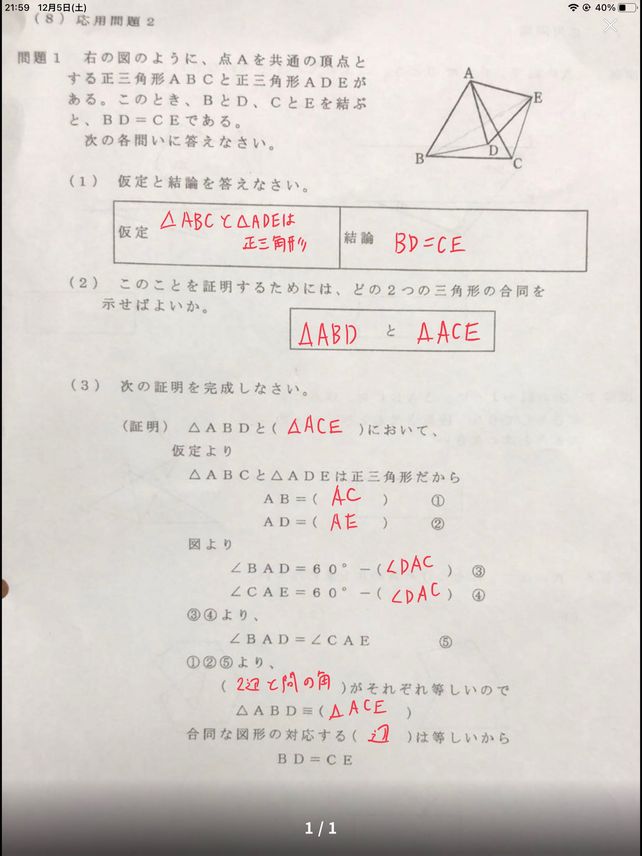 21:59 12月5日(土) 40%
(8) 応用問題2
問題1 右の図のように、点Aを共通の頂点と
する正三角形ABCと正三角形ADEが
ある。このとき、BとD、CとEを結ぶ
と、BD=CEである。
次の各問いに答えなさい。
A
E
D
B
C
(1) 仮定と結論を答えなさい。
仮定 △ABCと△ADEは
正三角形
結論 BD=CE
(2) このことを証明するためには、どの2つの三角形の合同を
示せばよいか。
△ABD と △ACE
(3) 次の証明を完成しなさい。
(証明) △ABDと( △ACE )において、
仮定より
△ABCと△ADEは正三角形だから
AB=( AC ) ①
AD=( AE ) ②
図より
∠BAD=60°-(∠DAC ) ③
∠CAE=60°-( ∠DAC ) ④
③④より、
∠BAD=∠CAE ⑤
①②⑤より、
( 2辺と間の角 )がそれぞれ等しいので
△ABD≡(△ACE )
合同な図形の対応する( 辺 )は等しいから
BD=CE
1 / 1